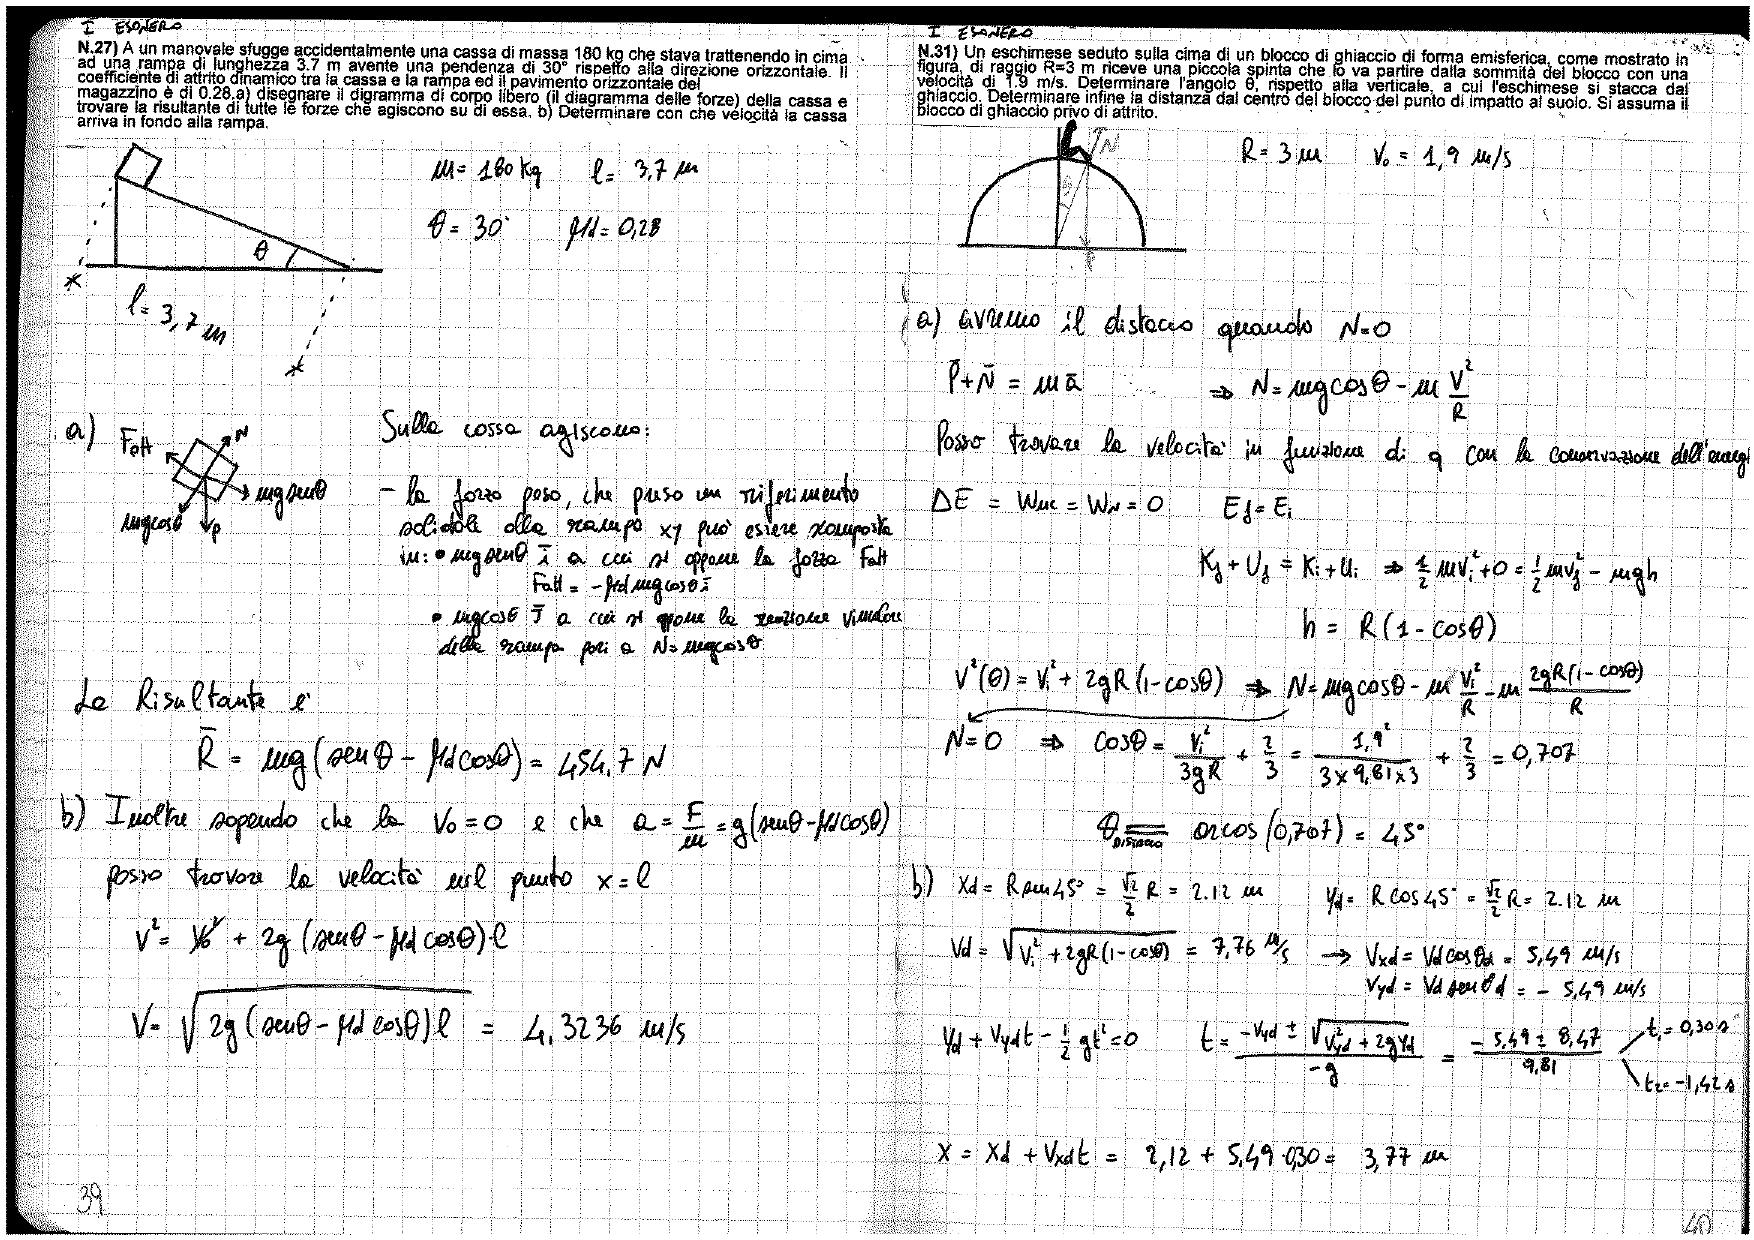 I ESONERO
N.27) A un manovale sfugge accidentalmente una cassa di massa 180 kg che stava trattenendo in cima
ad una rampa di lunghezza 3.7 m avente una pendenza di 30° rispetto alla direzione orizzontale. Il
coefficiente di attrito dinamico tra la cassa e la rampa ed il pavimento orizzontale del
magazzino è di 0.28.a) disegnare il digramma di corpo libero (il diagramma delle forze) della cassa e
trovare la risultante di tutte le forze che agiscono su di essa. b) Determinare con che velocità la cassa
arriva in fondo alla rampa.
m = 180 kg l = 3,7 m
θ = 30° μd = 0,28
θ
l = 3,7 m
a) Fatt N mg senθ mgcosθ P
Sulla cassa agiscono:
- la forza peso, che preso un riferimento
solidale alla rampa xy può essere scomposta
in: • mg senθ i a cui si oppone la forza Fatt
Fatt = -μd mg cosθ i
• mgcosθ j a cui si oppone la reazione vincolare
della rampa pari a N = mgcosθ
La Risultante è
R = mg(senθ - μd cosθ) = 454,7 N
b) Inoltre sapendo che la V₀ = 0 e che a = F/m = g(senθ - μd cosθ)
posso trovare la velocità nel punto x = l
V² = V₀² + 2g (senθ - μd cosθ)·l
V = √2g(senθ - μd cosθ)l = 4,3236 m/s
39
I ESONERO
N.31) Un eschimese seduto sulla cima di un blocco di ghiaccio di forma emisferica, come mostrato in
figura, di raggio R=3 m riceve una piccola spinta che lo va partire dalla sommità del blocco con una
velocità di 1.9 m/s. Determinare l'angolo θ, rispetto alla verticale, a cui l'eschimese si stacca dal
ghiaccio. Determinare infine la distanza dal centro del blocco del punto di impatto al suolo. Si assuma il
blocco di ghiaccio privo di attrito.
N
R = 3 m V₀ = 1,9 m/s
a) avremo il distacco quando N = 0
P + N = m a ⇒ N = mg cosθ - m V²/R
Posso trovare la velocità in funzione di q con la conservazione dell'energi
ΔE = Wnc = WN = 0 Ef = Ei
Kf + Uf = Ki + Ui ⇒ 1/2 mVi² + 0 = 1/2 mVf² - mgh
h = R(1 - cosθ)
V²(θ) = Vi² + 2gR(1-cosθ) ⇒ N = mg cosθ - m Vi²/R - m 2gR(1-cosθ)/R
N = 0 ⇒ cosθ = Vi²/3gR + 2/3 = 1,9²/3×9,81×3 + 2/3 = 0,707
θ DISTACCO = arcos(0,707) = 45°
b) Xd = R sen45° = √2/2 R = 2.12 m Yd = R cos45° = √2/2 R = 2.12 m
Vd = √Vi² + 2gR(1-cosθ) = 7,76 m/s → Vxd = Vd cosθd = 5,49 m/s
Vyd = Vd senθd = - 5,49 m/s
Yd + Vyd t - 1/2 gt² = 0 t = -Vyd ± √Vyd² + 2gYd/-g = - 5,49 ± 8,47/9,81 t₁ = 0,30 s
t₂ = -1,42 s
X = Xd + Vxd t = 2,12 + 5,49·0,30 = 3,77 m
40